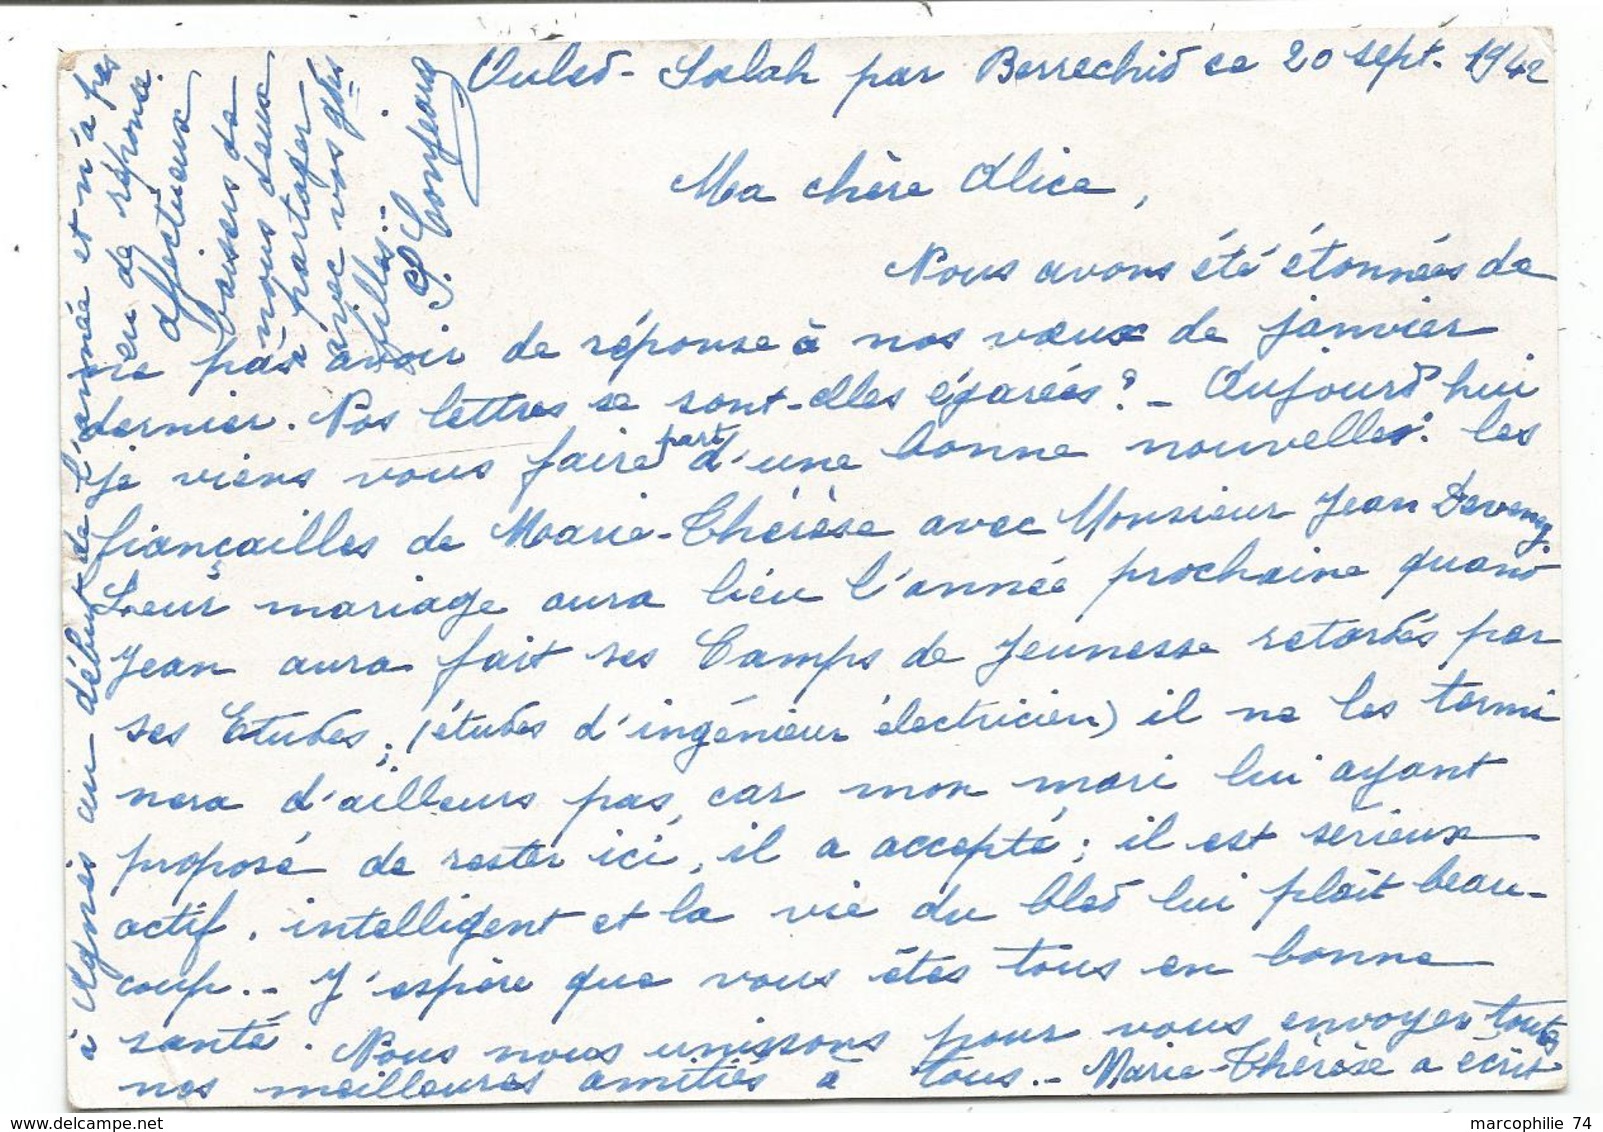 Ouled-Salah par Berrechid ce 20 sept. 1942
Ma chère Alice,
Nous avons été étonnées de
ne pas avoir de réponse à nos vœux de janvier
dernier. Nos lettres se sont-elles égarées? - Aujourd'hui
je viens vous faire part d'une bonne nouvelle: les
fiançailles de Marie-Thérèse avec Monsieur Jean
Leur mariage aura lieu l'année prochaine quand
Jean aura fait ses Camps de Jeunesse retardés par
ses Etudes; (études d'ingénieur électricien) il ne les termi
nera d'ailleurs pas, car mon mari lui ayant
proposé de rester ici, il a accepté; il est sérieux
actif, intelligent et la vie du bled lui plaît beau-
coup.- J'espère que vous êtes tous en bonne
santé. Nous nous unissons pour vous envoyer toutes
nos meilleures amitiés à tous.- Marie-Thérèse a écrit
à Agnès au début de l'année et n'a pas
eu de réponse.
Affectueux
baisers de
nous deux
à partager
avec vos gdes
filles.
marcophilie 74